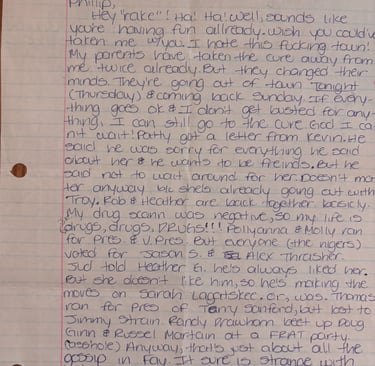 Phillip,
Hey "rake"! Ha! Ha! Well, sounds like
you're having fun allready. Wish you could've
taken me w/you. I hate this fucking town!
My parents have taken the cure away from
me twice already. But they changed their
minds. They're going out of town tonight
(Thursday) & coming back Sunday. If every-
thing goes ok & I don't get busted for any-
thing, I can still go to the Cure God I ca-
nt wait! Patty got a letter from Kevin. He
said he was sorry for everything he said
about her & he wants to be freinds. But he
said not to wait around for her. Doesn't mat-
ter anyway. b/c she's already going out with
Troy. Rob & Heather are back together basicly.
My drug scann was negative, so my life is
drugs, drugs, DRUGS!!! Pollyanna & Molly ran
for Pres. & V. Pres. But everyone (the nigers)
voted for Jason S. & Alex Thrasher.
Jud told Heather G. he's always liked her.
But she doesn't like him, so he's making the
moves on Sarah. or, was. Thomas
ran for Pres of Terry Sanford, but lost to
Jimmy Strain. Randy beet up Doug
Ginn & Russel Martain at a FRAT party.
(asshole) Anyway, that's just about all the
gossip in Fay. It sure is strange with